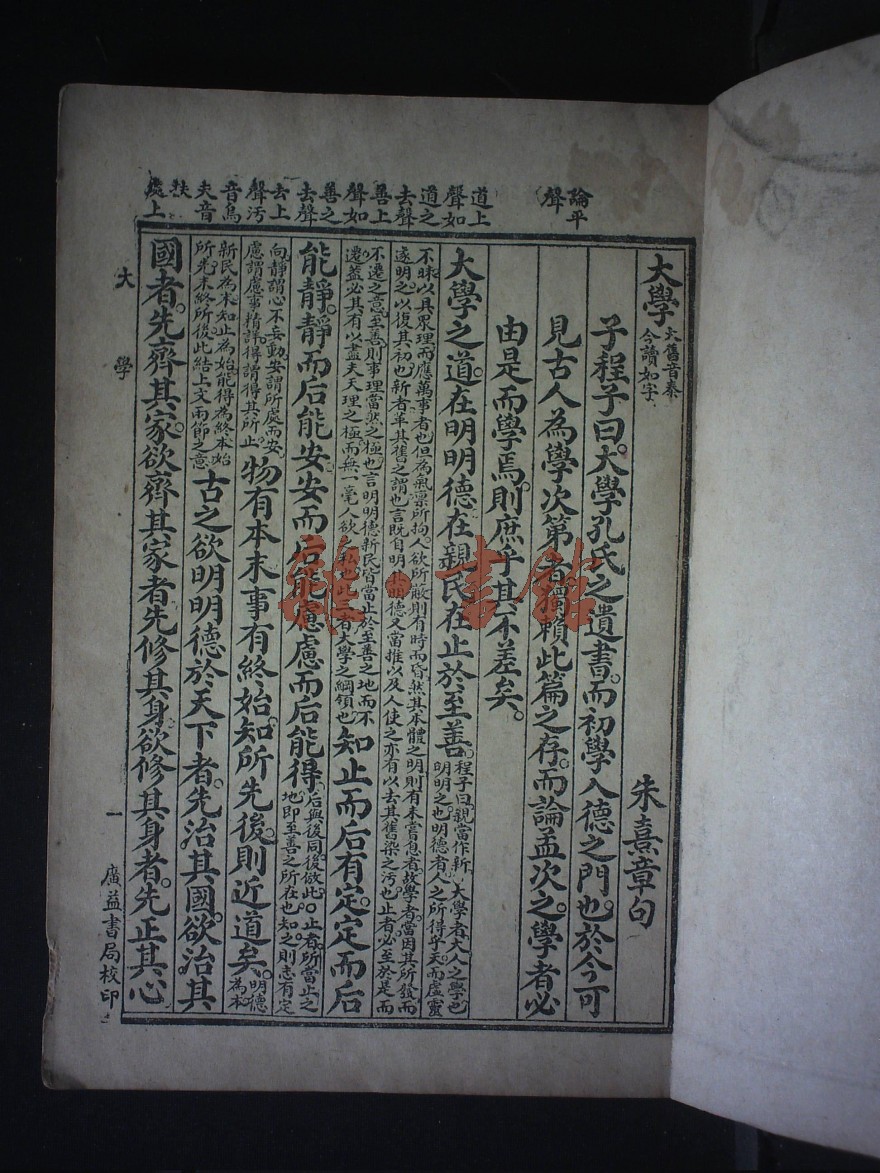 論平
聲
道上
聲如
道之
去聲
善上
聲如
善之
去聲
去上
聲汚
音烏
夫音
扶
大學
大舊音泰
今讀如字
朱熹章句
子程子曰。大學孔氏之遺書。而初學入德之門也。於今可
見古人為學次第者。獨賴此篇之存。而論孟次之。學者必
由是而學焉。則庶乎其不差矣。
大學之道。在明明德。在親民。在止於至善。
程子曰。親當作新。大學者大人之學也
明明之也。明德者人之所得乎天。而虛靈
不昧。以具眾理而應萬事者也。但為氣禀所拘。人欲所蔽。則有時而昏。然其本體之明。則有未嘗息者。故學者當因其所發而
遂明之。以復其初也。新者革其舊之謂也。言既自明其明德。又當推以及人。使之亦有以去其舊染之汚也。止者必至於是而
不遷之意。至善則事理當然之極也。言明明德新民。皆當止於至善之地而不
遷。蓋必其有以盡夫天理之極。而無一毫人欲之私也。此三者大學之綱領也
知止而后有定。定而后
能靜。靜而后能安。安而后能慮。慮而后能得。
后與後同。後倣此。○止者。所當止之
地。即至善之所在也。知之則志有定
向。靜謂心不妄動。安謂所處而安。
慮謂慮事精詳。得謂得其所止。
物有本末。事有終始。知所先後。則近道矣。
明德
為本
新民為末。知止為始。能得為終。本始
所先。末終所後。此結上文兩節之意
古之欲明明德於天下者。先治其國。欲治其
國者。先齊其家。欲齊其家者。先修其身。欲修其身者。先正其心
大學
一
廣益書局校印
雜·書館